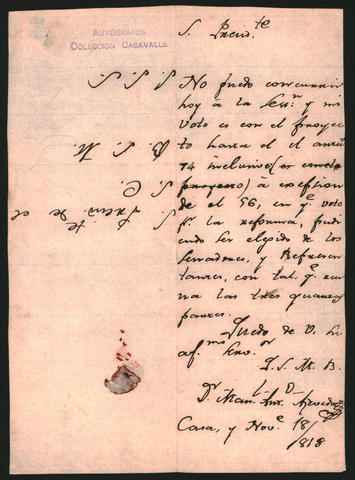 AUTÓGRAFOS
COLECCIÓN CASAVALLE
S. Presid.te
No puedo concurrir
hoy à la Sess.n y mi
voto es con el proyec
to hasta el artic
74 inclusive (es con el
proyecto) à exepcion
de el 56, en q.e voto
p.r la reforma, pudi
endo ser elegido de los
Senadores, y Represen
tantes, con tal q.e reu
na las tres quartas
partes.
Quedo de V. su
af.mo Serv.or
Q. S. M. B.
D.r Man.l Ant. Acevedo
Casa, y Nov.e 18/
/818
S. Presid.te de el
S. C.